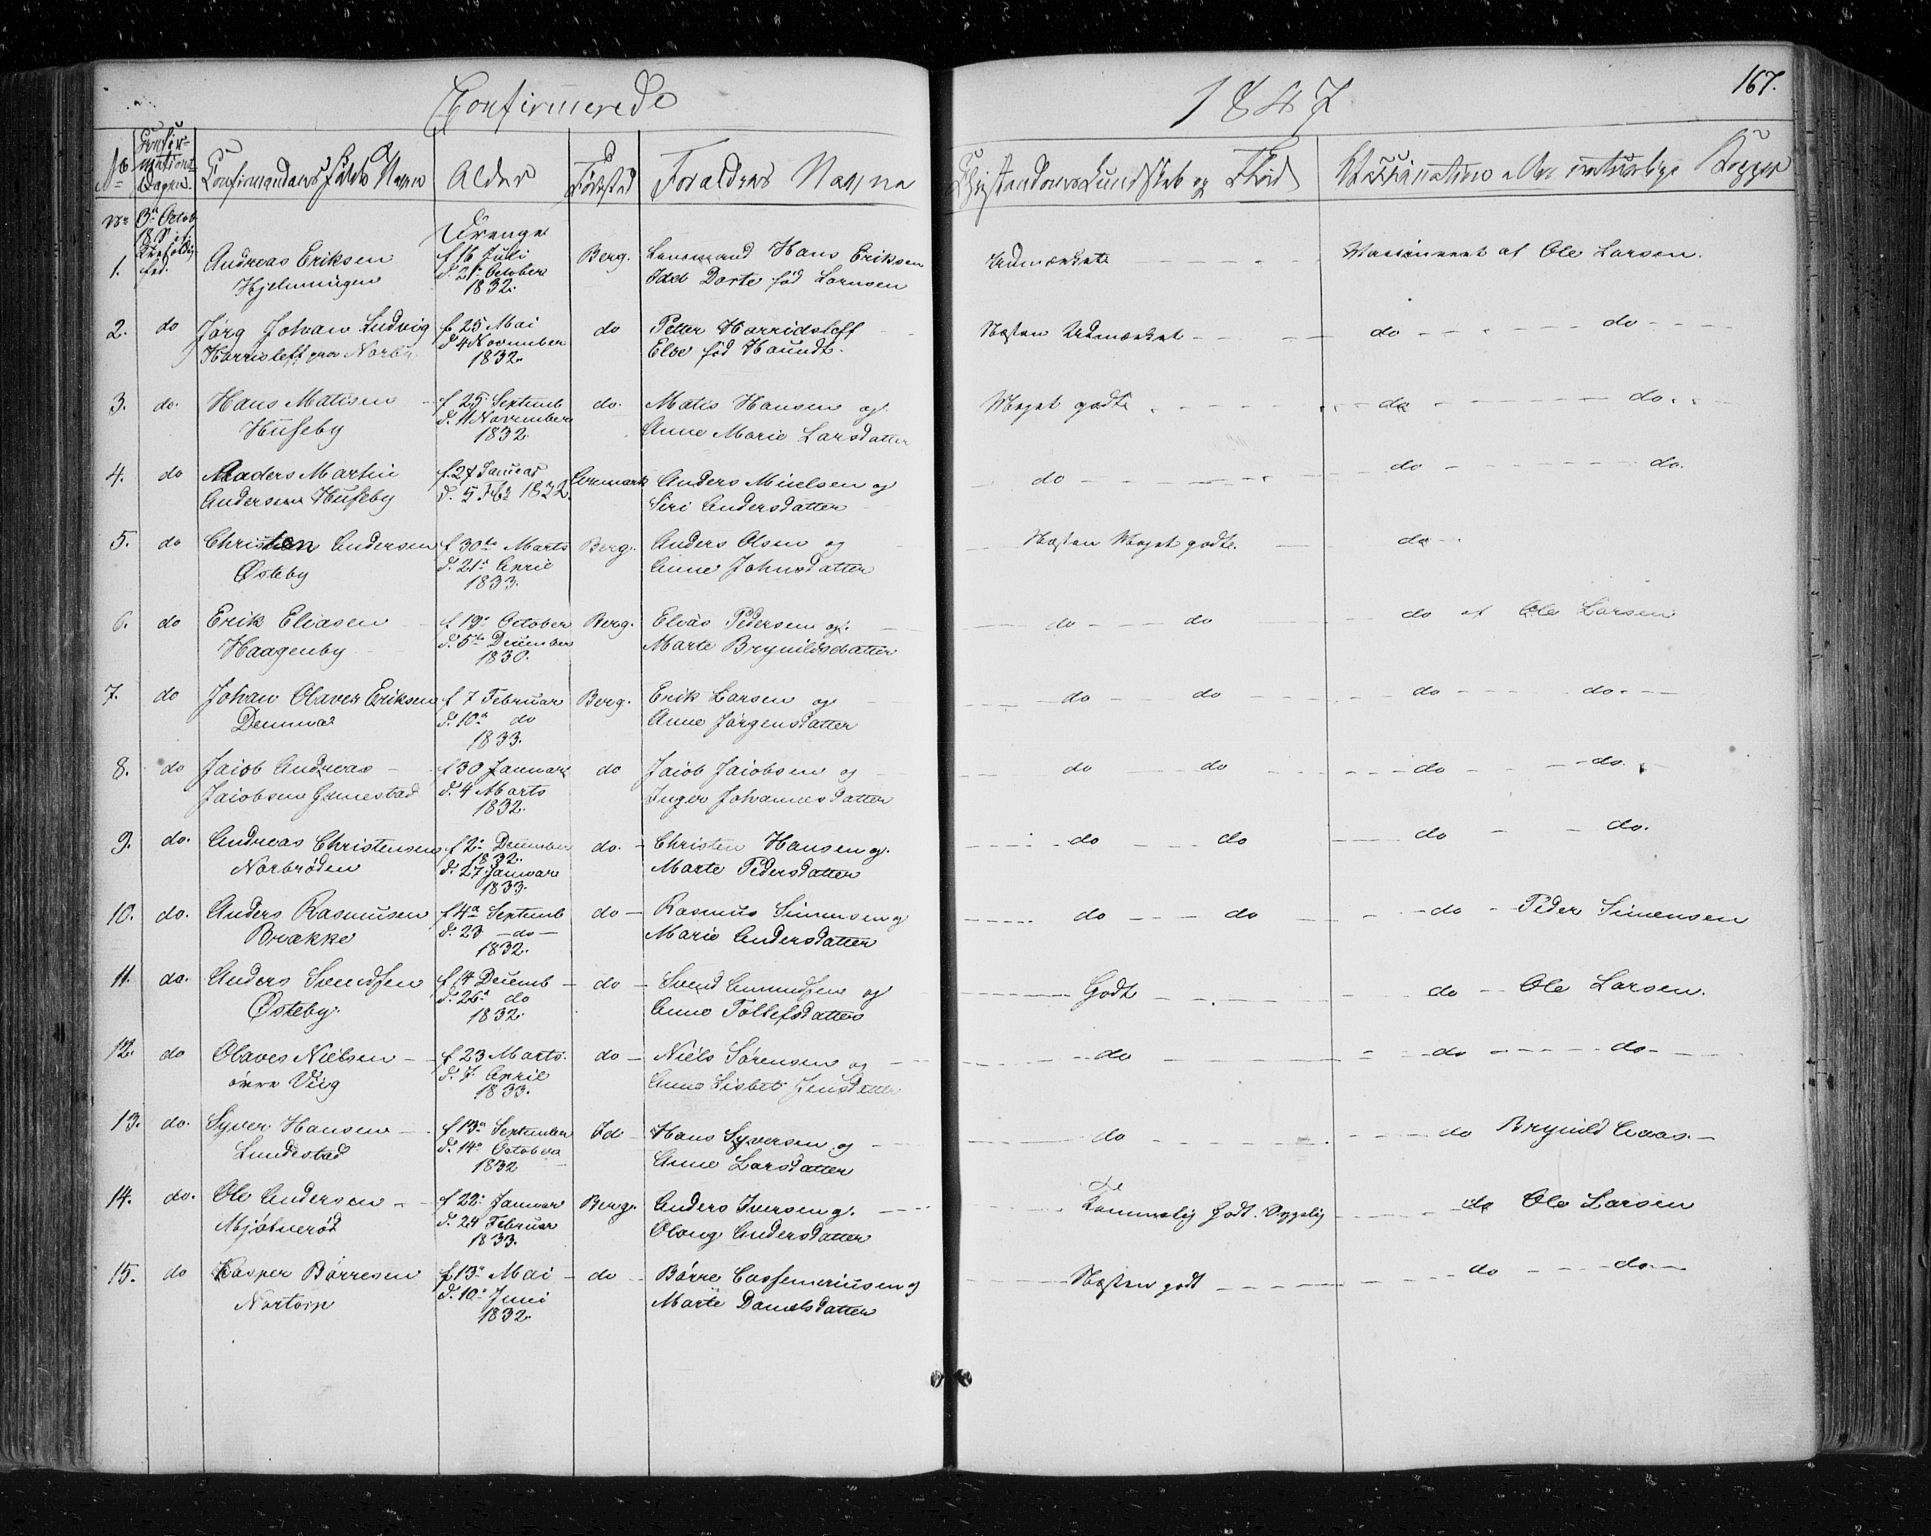 Confirmerede
1847
167.
No Confirmations Dagen Confirmandens fulde Navn Alder Fødested Forældrens Navne Christendoms Kundskab og Flid Vaccination
Drenge
1. 3die Octob Andreas Eriksen f 16 Juli Berg. Lensmand Hans Eriksen Udmærket Vaccineret af Ole Larsen.
Hjelmungen d. 21 October Dorte fød Larnsen
1832.
2. do Jørg Johan Ludvig f. 25 Mai do Petter Harridsleff Næsten Udmærket do do
Harrisleff d. 4 November Else fød Haundt.
1832.
3. do. Hans Matisen f 25 Septemb do. Matis Hansen og Meget godt do do.
Huseby d. 11 November Anne Marie Larsdatter
1832.
4. do Anders Martin f. 27 Januar Aremark Anders Nielsen og do do do.
Andersen Huseby d. 5 Feb 1832. Siri Andersdatter
5. do Christen Andersen f 30te Marts Berg. Anders Olsen og Næsten Meget godt. do
Østeby d. 21 April Anne Johnsdatter
1833.
6. do Erik Eliasen f 19 October Berg. Elias Pedersen og. do do do af Ole Larsen
Haagenby d. 5te December Marte Brynildsdatter
1830.
7. do Johan Olaves Eriksen f 7 Februar Berg. Erik Larsen og do do do do.
Demma d. 10 do Anne Jørgensdatter
1833.
8. do Jacob Andreas f 30 Januar do Jacob Jacobsen og do do do do
Jacobsen Gunestad d. 4 Marts Inger Johannesdatter
1832.
9. do. Andreas Christensen f 2 December do. Christen Hansen og. do do do do.
1832.
Norbrøden d. 27. Januar Marte Pedersdatter
1833.
10. do. Anders Rasmusen f 4 Septemb do Rasmus Simensen og do do do Peder Simensen
Brække d. 23 do Marie Andersdatter
1832.
11. do. Anders Svendsen f 14 Decemb do Svend Amundsen og Godt do Ole Larsen.
Østeby. d. 26 do Anne Tollefsdatter
1832.
12. do Olaves Nielsen f 23 Marts. do Niels Sørensen og do do do
øvre Viig d. 7. April Anne Lisbet Jensdatter
1833.
13. do. Syver Hansen f 13 September Id Hans Syversen og do do Brynild Aaas.
Lundestad d. 14 October Anne Larsdatter
1832
14. do. Ole Andersen f 22 Januar Berg. Anders Iversen og. Temmelig Godt. do Ole Larsen
Mjølnerød d. 24 Februar Olaug Andersdatter
1833.
15. do Casper Børresen f 13 Mai do Børre Cassemeriusen og Næsten godt do do.
Nortorp d. 10 Juni Marte Danielsdatter
1832.